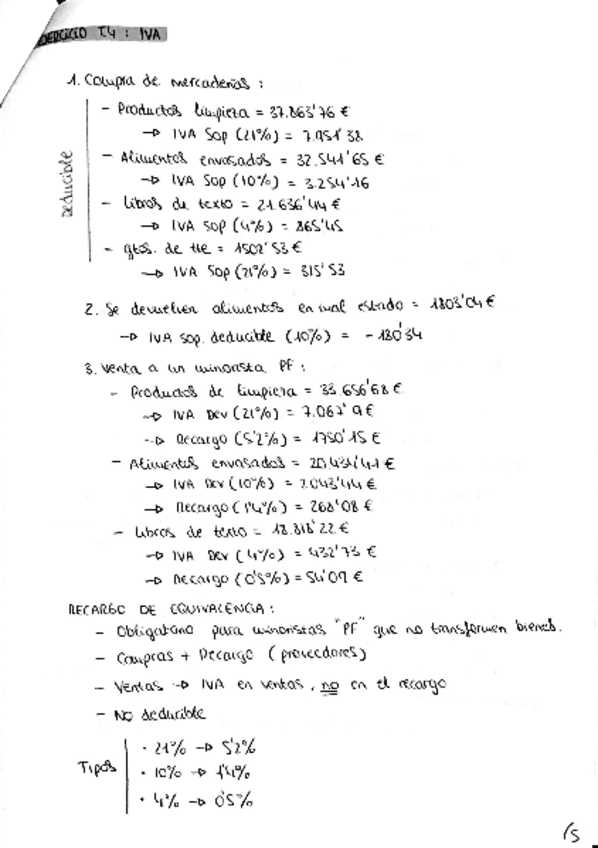 EJERCICIO T.4 : IVA
1. Compra de mercaderías :
Deducible
- Productos limpieza = 37.863'76 €
→ IVA Sop (21%) = 7.951'38
- Alimentos envasados = 32.541'65 €
→ IVA Sop (10%) = 3.254'16
- Libros de texto = 21.636'44 €
→ IVA Sop (4%) = 865'45
- gtos. de tte = 1502'53 €
→ IVA Sop (21%) = 315'53
2. Se devuelven alimentos en mal estado = 1803'04 €
→ IVA sop. deducible (10%) = - 180'34
3. Venta a un minorista PF :
- Productos de limpieza = 33.656'68 €
→ IVA Dev (21%) = 7.067'9 €
→ Recargo (5'2%) = 1750'15 €
- Alimentos envasados = 20.434'41 €
→ IVA Dev (10%) = 2.043'44 €
→ Recargo (1'4%) = 268'08 €
- Libros de texto = 18.818'22 €
→ IVA Dev (4%) = 432'73 €
→ Recargo (0'5%) = 54'09 €
RECARGO DE EQUIVALENCIA :
- Obligatorio para minoristas "PF" que no transformen bienes.
- Compras + Recargo (proveedores)
- Ventas → IVA en ventas, no en el recargo
- No deducible
Tipos
· 21% → 5'2%
· 10% → 1'4%
· 4% → 0'5%